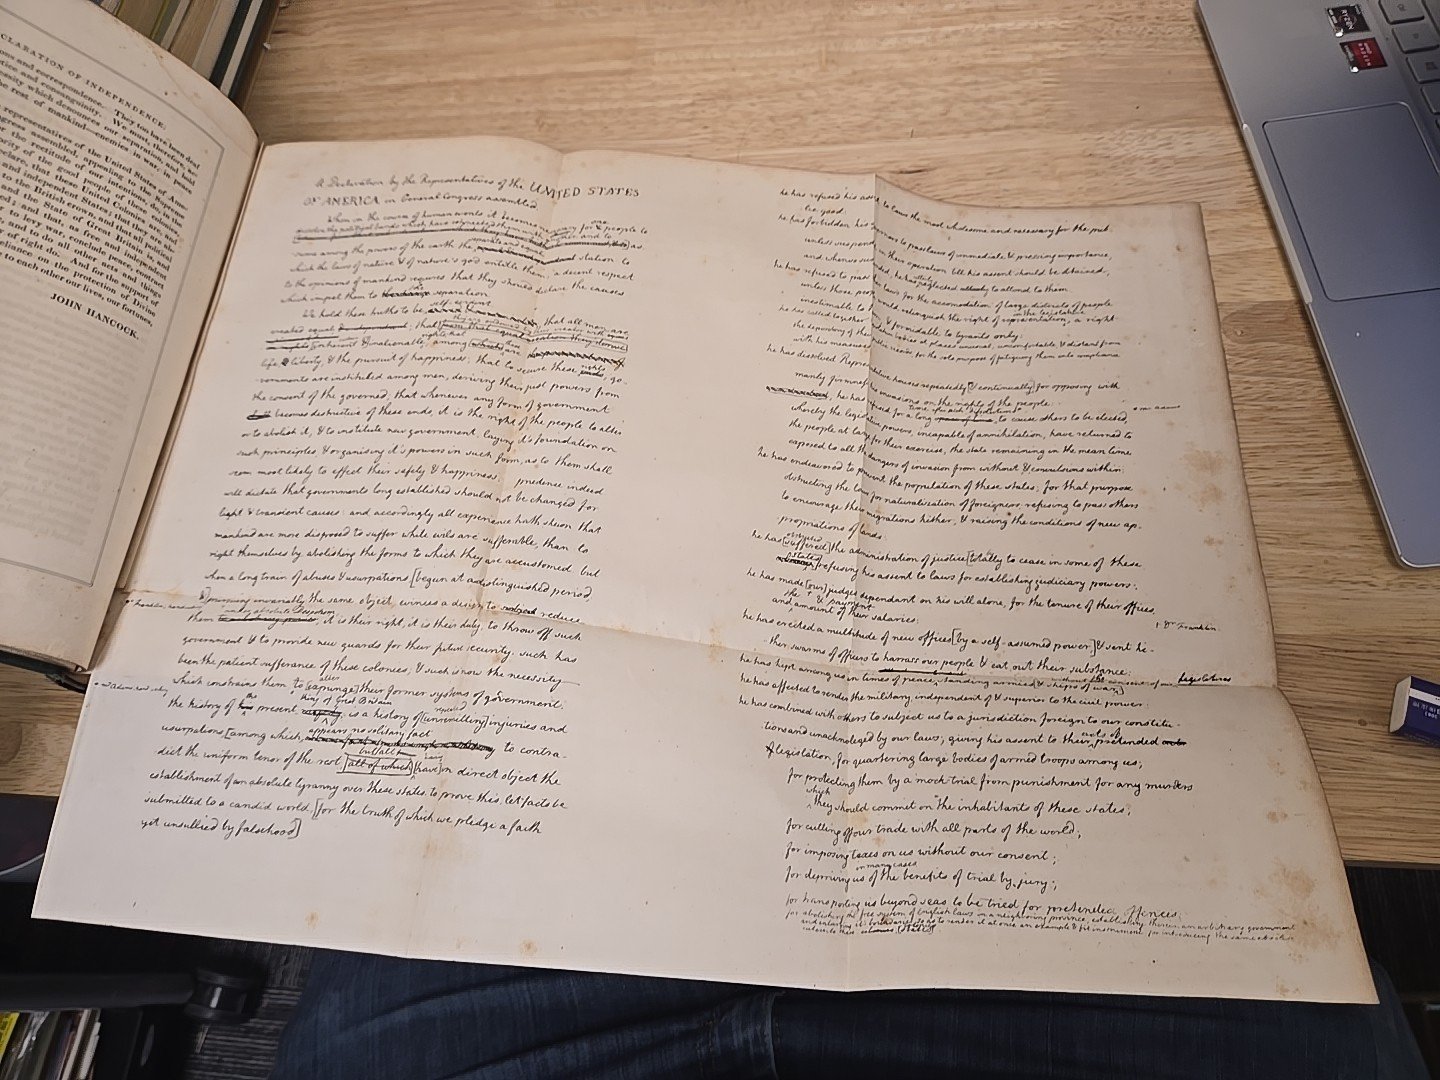 CLARATION OF INDEPENDENCE.
ons and correspondence. They too have been deaf
tice and consanguinity. We must, therefore, ac-
cessity which denounces our separation, and hold
he rest of mankind—enemies in war, in peace
representatives of the United States of Ame
gress assembled, appealing to the Supreme
r the rectitude of our intentions, do, in the
ority of the good people of these colonies,
eclare, that these United Colonies are, and
d independent States; that they are ab
to the British crown, and that all political
and the State of Great Britain is, and
ed; and that, as free and independent
r to levy war, conclude peace, contract
e, and to do all other acts and things
of right do. And for the support of
eliance on the protection of Divine
e to each other our lives, our fortunes,
JOHN HANCOCK.
A Declaration by the Representatives of the UNITED STATES
OF AMERICA in General Congress assembled
When in the course of human events it becomes necessary for one people to
dissolve the political bands which have connected them with another, and to as-
sume among the powers of the earth the separate and equal station to
which the laws of nature & of nature's god entitle them, a decent respect
to the opinions of mankind requires that they should declare the causes
which impel them to the separation
We hold these truths to be self-evident, that all men are
created equal that they are endowed by their creator with
[inherent &] inalienable rights that among these are
life, & liberty, & the pursuit of happiness; that to secure these rights, go-
vernments are instituted among men, deriving their just powers from
the consent of the governed; that whenever any form of government
becomes destructive of these ends, it is the right of the people to alter
or to abolish it, & to institute new government, laying it's foundation on
such principles & organising it's powers in such form, as to them shall
seem most likely to effect their safety & happiness. prudence indeed
will dictate that governments long established should not be changed for
light & transient causes: and accordingly all experience hath shewn that
mankind are more disposed to suffer while evils are sufferable, than to
right themselves by abolishing the forms to which they are accustomed. but
when a long train of abuses & usurpations [begun at a distinguished period,
&] pursuing invariably the same object, evinces a design to reduce
them under absolute Despotism, it is their right, it is their duty, to throw off such
government & to provide new guards for their future security. such has
been the patient sufferance of these colonies, & such is now the necessity
which constrains them to alter [expunge] their former systems of government.
the history of the present king of Great Britain is a history of [unremitting] repeated injuries and
usurpations, [among which, appears no solitary fact to contra-
dict the uniform tenor of the rest, but all [all of which] [have] in direct object the
establishment of an absolute tyranny over these states. to prove this, let facts be
submitted to a candid world. [for the truth of which we pledge a faith
yet unsullied by falsehood]
he has refused his assent to laws the most wholesome and necessary for the pub-
lic good:
he has forbidden his governors to pass laws of immediate & pressing importance,
unless suspended in their operation till his assent should be obtained,
and when so suspended, he has neglected utterly to attend to them.
he has refused to pass other laws for the accomodation of large districts of people
unless those people would relinquish the right of representation in the legislature, a right
inestimable to them, & formidable to tyrants only:
he has called together legislative bodies at places unusual, uncomfortable, & distant from
the depository of their public records for the sole purpose of fatiguing them into compliance
with his measures:
he has dissolved Representative houses repeatedly [& continually] for opposing with
manly firmness his invasions on the rights of the people:
he has refused for a long time after such dissolutions to cause others to be elected,
whereby the legislative powers, incapable of annihilation, have returned to
the people at large for their exercise, the state remaining in the mean time
exposed to all the dangers of invasion from without & convulsions within:
he has endeavored to prevent the population of these states; for that purpose
obstructing the laws for naturalization of foreigners, refusing to pass others
to encourage their migrations hither, & raising the conditions of new ap-
propriations of lands:
he has obstructed [suffered] the administration of justice [totally to cease in some of these
states] refusing his assent to laws for establishing judiciary powers:
he has made [our] judges dependant on his will alone, for the tenure of their offices,
the & payment
and amount of their salaries:
Dr Franklin
he has erected a multitude of new offices [by a self-assumed power] & sent hi-
ther swarms of officers to harrass our people & eat out their substance:
he has kept among us in times of peace, standing armies [& ships of war] without the consent of our legislatures
he has affected to render the military, independent of & superior to the civil power:
he has combined with others to subject us to a jurisdiction foreign to our constitu-
tions and unacknoleged by our laws; giving his assent to their acts of pretended
legislation, for quartering large bodies of armed troops among us;
for protecting them by a mock-trial from punishment for any murders
which
they should commit on the inhabitants of these states;
for cutting off our trade with all parts of the world;
for imposing taxes on us without our consent;
for depriving us in many cases of the benefits of trial by jury;
for transporting us beyond seas to be tried for pretended offences;
for abolishing the free system of English laws in a neighboring province, establishing therein an arbitrary government
and enlarging it's boundaries so as to render it at once an example & fit instrument for introducing the same absolute
rule into these [states]
RYZEN
AMD
RADEON